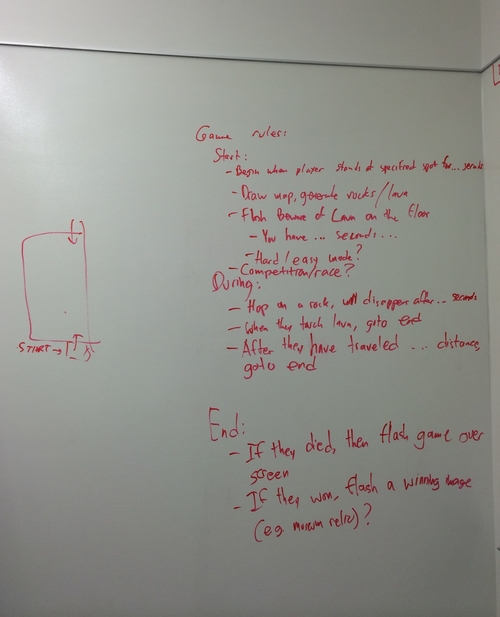 Game rules:
Start:
- Begin when player stands at specified spot for... seconds
- Draw map, generate rocks/lava
- Flash Beware of Lava on the floor
- You have ... seconds ...
- Hard/easy mode?
- Competition/race?
During:
- Hop on a rock, will disappear after... seconds
- When they touch lava, goto end
- After they have traveled ... distance,
goto end
START →
End:
- If they died, then flash game over
screen
- If they won, flash a winning image
(e.g. museum relic)?